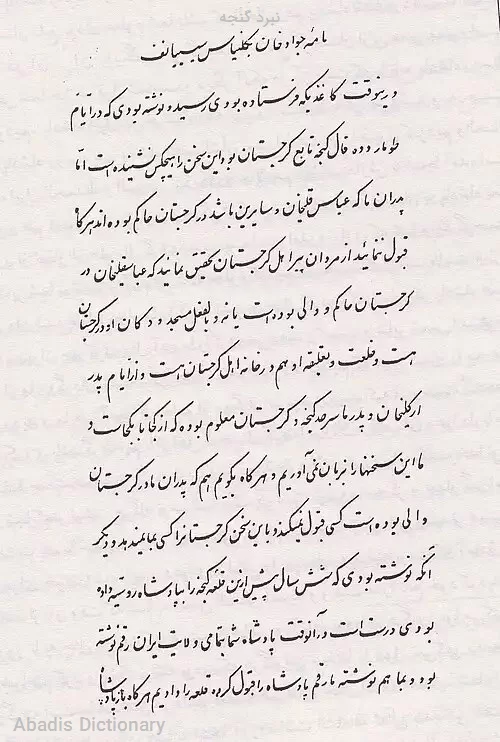 نبرد گنجه
نامهٔ جواد خان بکنیاس سیسیانف
درینوقت کاغذیکه فرستاده بودی رسید و نوشته بودی که در ایام
طومار دده فال گنجه تابع گرجستان بود این سخن را هیچکس نشنیده است اما
پدران ما که عباس قلیخان و سایرین باشد در گرجستان حاکم بوده اند هرگاه
قبول ننمائید از مردان پیر اهل گرجستان تحقیق نمایند که عباسقلیخان در
گرجستان حاکم و والی بوده است یا نه و بالفعل مسجد و دکان او در گرجستان
هست و خلعت و تعلیقه او هم در خانه اهل گرجستان هست و از ایام پدر
ارکلیخان و پدر ما سرحد گنجه و گرجستان معلوم بوده که از کجا تا بکجاست و
ما این سخنها را بزبان نمی آوریم و هرگاه بگویم هم که پدران ما در گرجستان
والی بوده است کسی قبول نمیکند و باین سخن گرجستانرا کسی بما نمیدهد و دیگر
آنکه نوشته بودی که شش سال پیش ازین قلعه گنجه را بپادشاه روسیه داده
بودی درست است در آنوقت پادشاه شما بتمامی ولایت ایران رقم نوشته
بود و بما هم نوشته ما رقم پادشاه را قبول کرده قلعه را دادیم هرگاه باز پادشاه
Abadis Dictionary